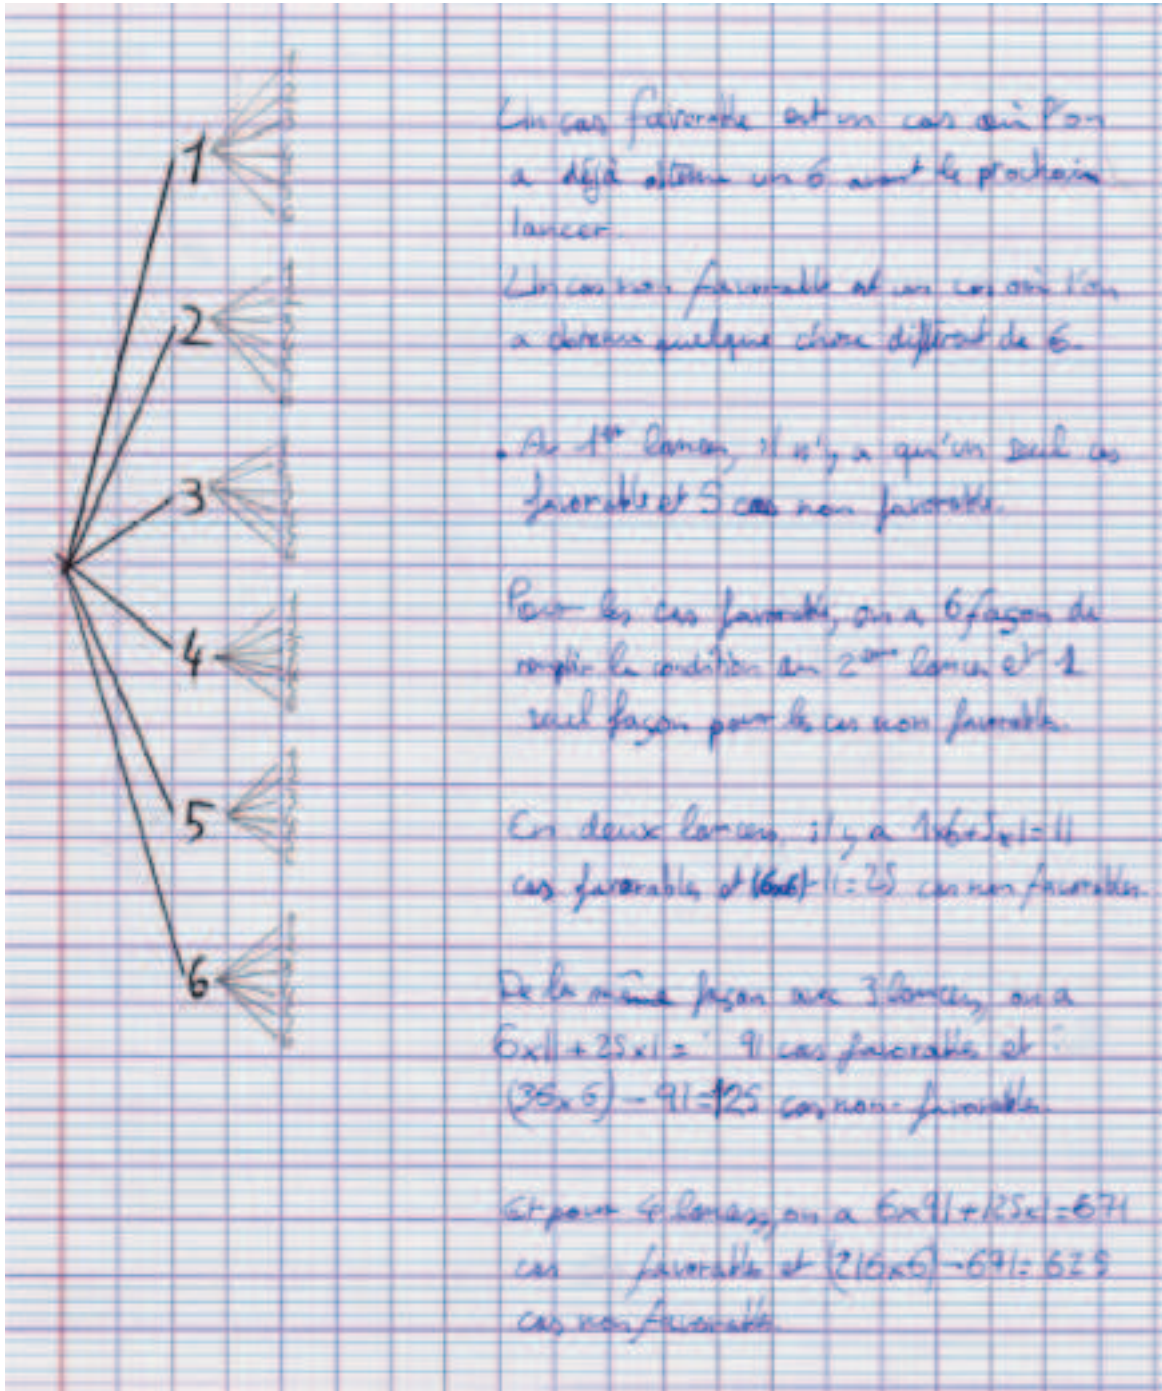 1
2
3
4
5
6
Un cas favorable est un cas où l'on
a déjà obtenu un 6 avant le prochain
lancer.
Un cas non favorable est un cas où l'on
a obtenu quelque chose différent de 6.
. Au 1er lancer, il n'y a qu'un seul cas
favorable et 5 cas non favorable.
Pour les cas favorable, on a 6 façon de
remplir la condition au 2ème lancer et 1
seul façon pour les cas non favorables.
En deux lancers, il y a 1x6+5x1=11
cas favorables et (6x6)-11=25 cas non favorables.
De la même façon avec 3 lancers, on a
6x11+25x1= 91 cas favorables et
(36x6)-91=125 cas non-favorables.
Et pour 4 lancers, on a 6x91+125x1=671
cas favorables et (216x6)-671=625
cas non favorable.